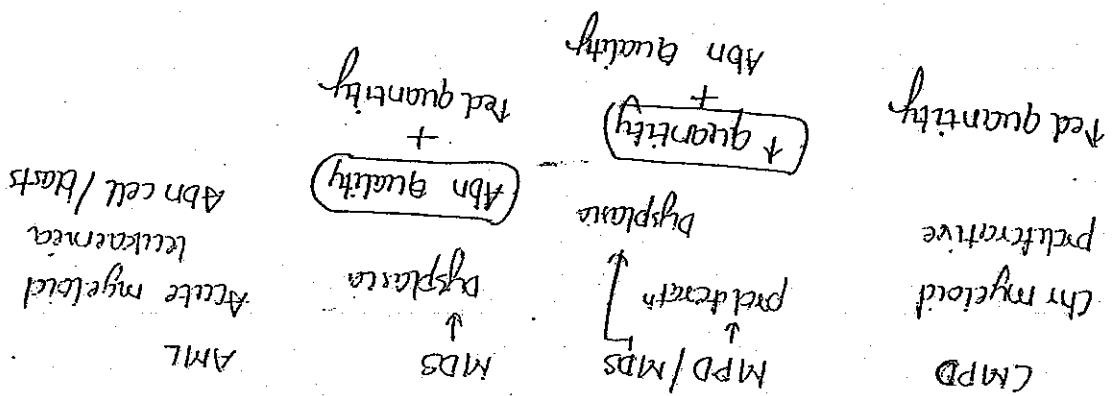 CMPD
Chr myeloid
proliferative
↑ed quantity
MPD/MDS
↓
proliferatn
Dysplasia
↑ quantity
+
Abn Quality
MDS
↓
Dysplasia
Abn Quality
+
↑ed quantity
AML
Acute myeloid
leukaemia
Abn cell/blasts